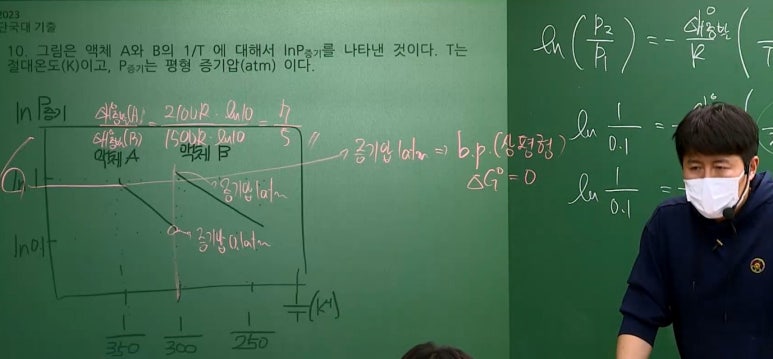 2023
단국대 기출
10. 그림은 액체 A와 B의 1/T 에 대해서 lnP증기를 나타낸 것이다. T는
절대온도(K)이고, P증기는 평형 증기압(atm) 이다.
ln P증기
ΔH°증발(A) / ΔH°증발(B) = 2100R·ln10 / 1500R·ln10 = 7/5 "
액체 A 액체 B
증기압 1atm ⇒ b.p.(상평형)
ΔG° = 0
ln 1
증기압 1atm
ln 0.1
증기압 0.1atm
1/T (K⁻¹)
1/350 1/300 1/250
ln(P2/P1) = - ΔH°증발/R (
ln 1/0.1 = -
ln 1/0.1 =